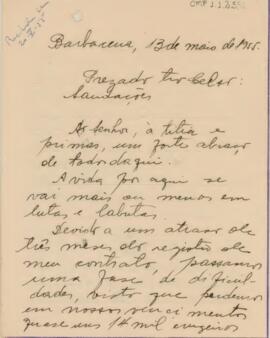 Barbacena, 13 de maio de 1955.
Prezado tio
Saudações
Ao senhor, à titia e
primas, um forte abraço
de todos daqui.
A vida por aqui se
vai mais ou menos em
lutas e labutas.
Devido a um atraso de
três meses do registro de
meu contrato, passamos
uma fase de dificul-
dades, visto que perdemos
em nossos vencimentos
quase uns 14 mil cruzeiros